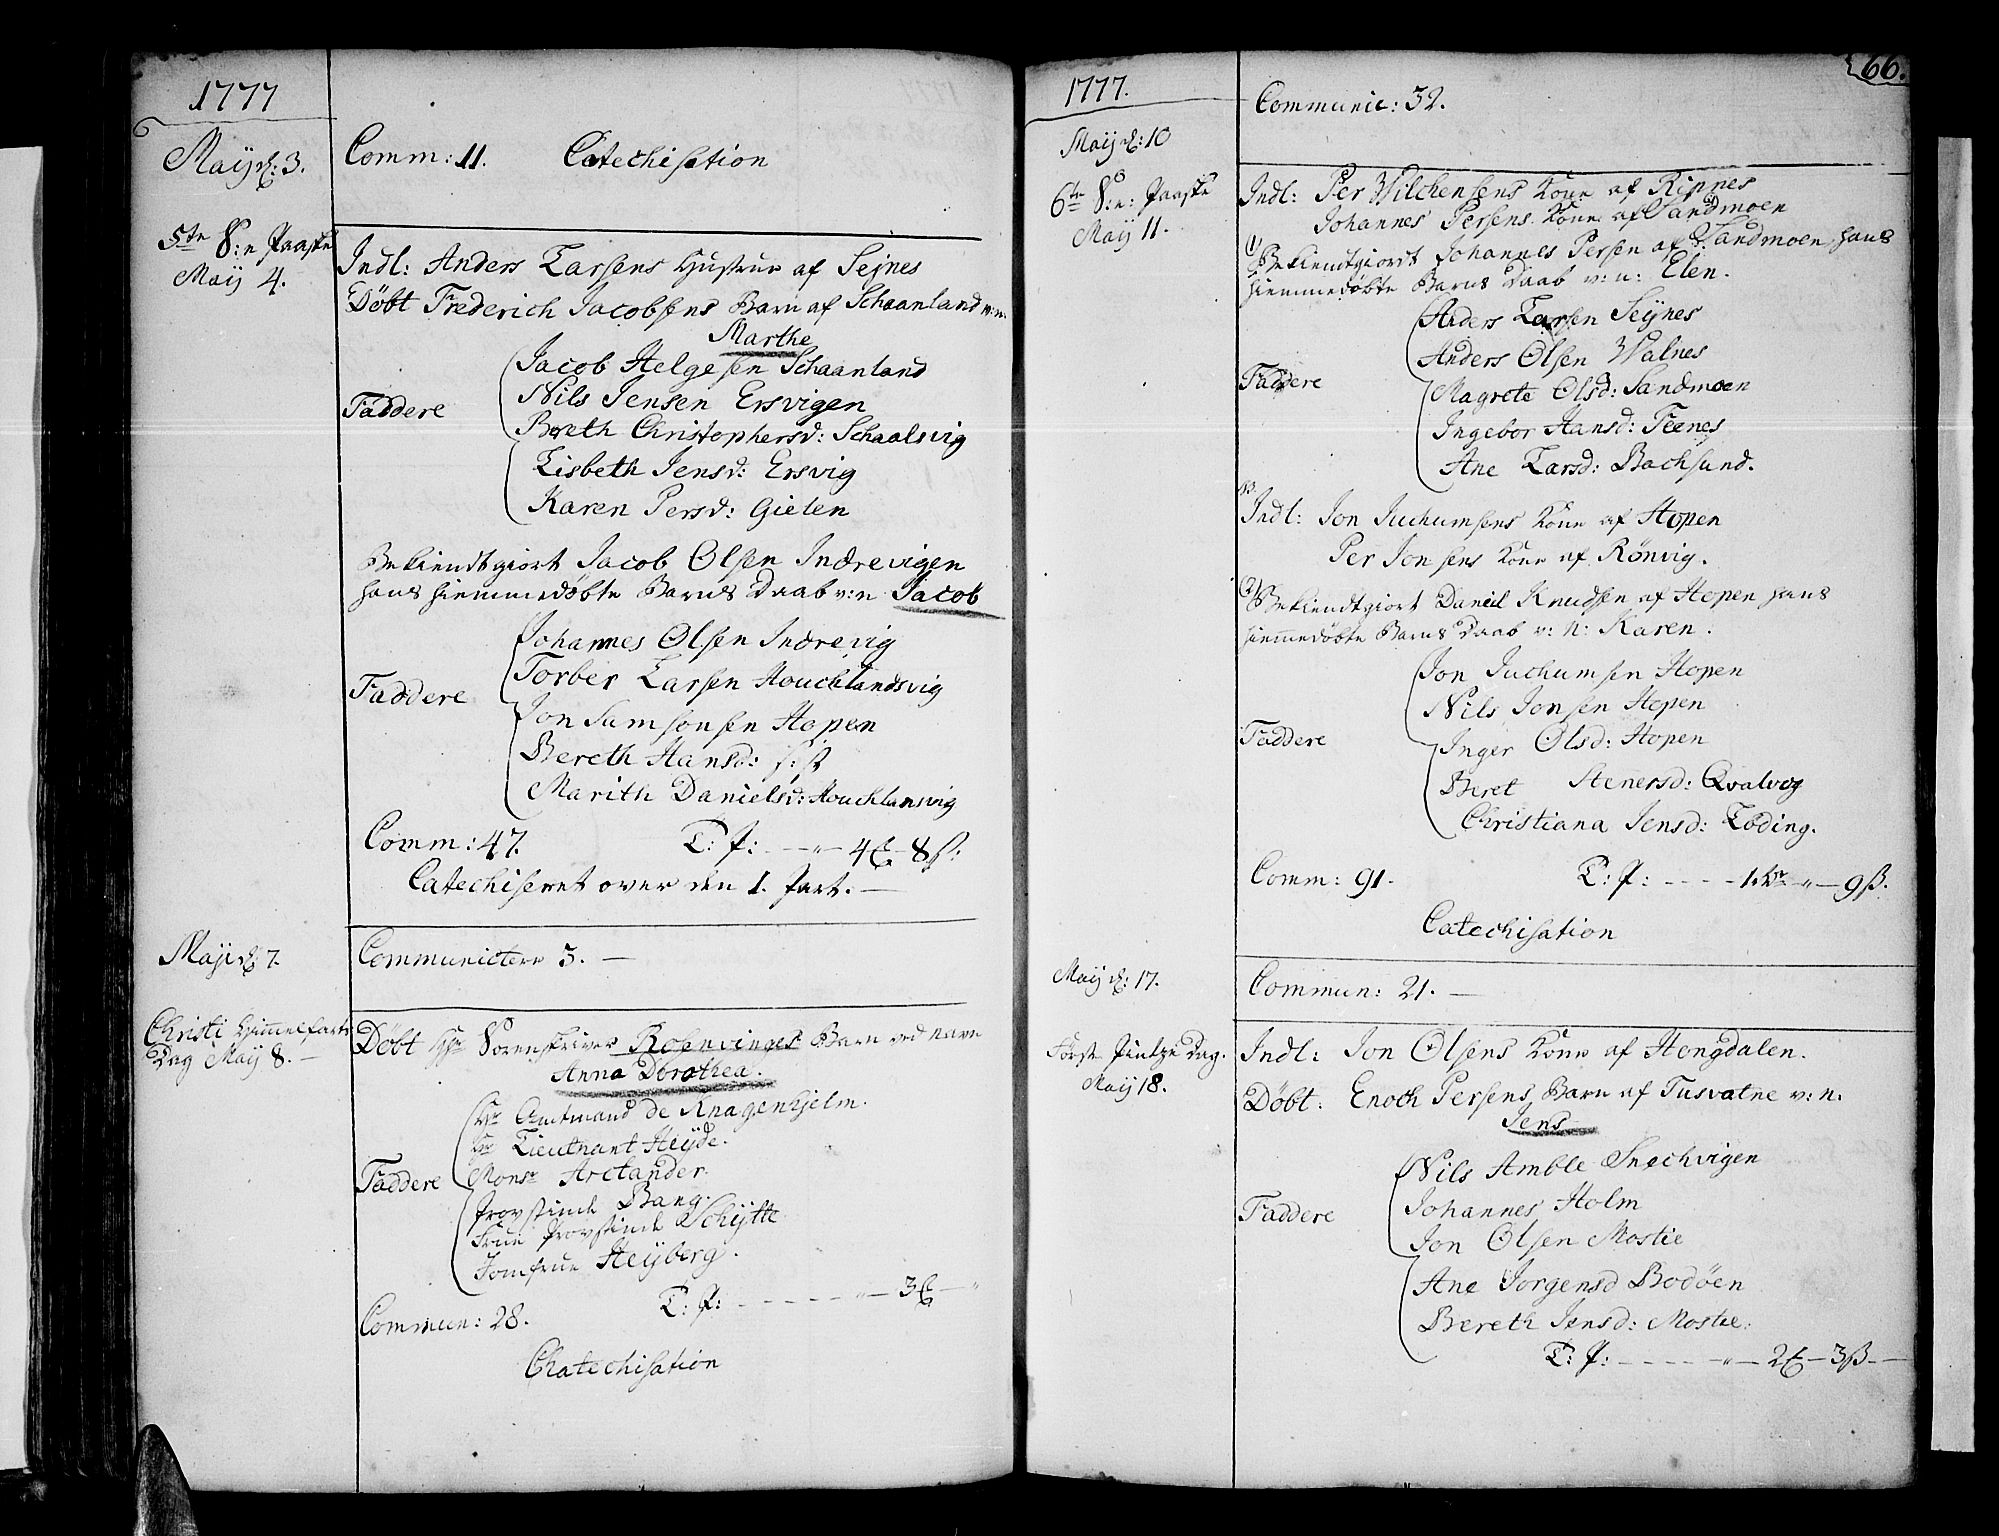 1777
Maij d: 3.
Comm: 11. Catechisation
5te S: e: Paaske
Maij 4.
Indl: Anders Larsens Hustrue af Sejnes
Döbt Frederich Jacobsens Barn af Schaanland v: n:
Marthe
Jacob Helgesen Schaanland
Nils Jensen Ersvigen
Faddere
Bereth Christophersd: Schaalsvig
Lisbeth Jensd: Ersvig
Karen Persd: Gielen
Bekiendtgiort Jacob Olsen Indrevigen
hans hiemmedøbte Barns Daab v: n Jacob
Johannes Olsen Indrevig
Torber Larsen Houchlandsvig
Faddere
Jon Samsonsen Hopen
Bereth Hansd:
Marith Danielsd: Houchlansvig
Comm: 47. T: P: - - - „ - 4 - 8 ß:
Catechiseret over den 1. Part. -
Maji d: 7.
Communictere 3. -
Christi Himmelfarts
Dag Maij 8. -
Döbt Hr Sorenskriver Rosenvinges Barn ved navn
Anna Dorothea.
Hr Amtmand de Knagenhjelm.
Hr Lieutnant Heyde.
Faddere
Monsr Arctander.
Provstinde Bang.
Frue Provstinde Schijtte
Jomfrue Heyberg.
T: P: - - - - - - „ - 3 - „
Commun: 28.
Chatechisation
66.
1777.
Maij d: 10
Communic: 32.
6te S: e: Paaske
Maij 11.
Indl: Per Wilchensens Kone af Ripnes
Johannes Persens Kone af Sandmoen
1) Bekiendtgiort Johannes Persen af Sandmoen, hans
hiemmedøbte Barns Daab v: n: Elen.
Anders Larsen Seijnes
Anders Olsen Walnes
Faddere
Magrete Olsd: Sandmoen
Ingebor Hansd: Teenes
Ane Larsd: Bachsund.
Indl: Jon Juchumsens Kone af Hopen
Per Jonsens Kone af Rönvig.
2) Bekiendtgiort Daniel Knudsen af Hopen hans
hiemmedøbte Barns Daab v: n: Karen.
Jon Juchumsen Hopen
Nils Jonsen Hopen
Faddere
Inger Olsd: Hopen
Beret Stenersd: Qvalvog
Christiana Jensd: Löding.
Comm: 91. T: P: - - - - 1. „ - 9 ß.
Catechisation
Maij d: 17.
Commun: 21. -
Förste Pintze Dag.
Maij 18.
Indl: Jon Olsens Kone af Hongdalen.
Döbt: Enoch Persens Barn af Tusvatne v: n:
Jens
Nils Amble Snechvigen
Johannes Holm
Faddere
Jon Olsen Mostie
Ane Jorgensd Bodöen
Bereth Jensd: Mostie:
T: P: - - - - - „ - 2 - 3 ß -